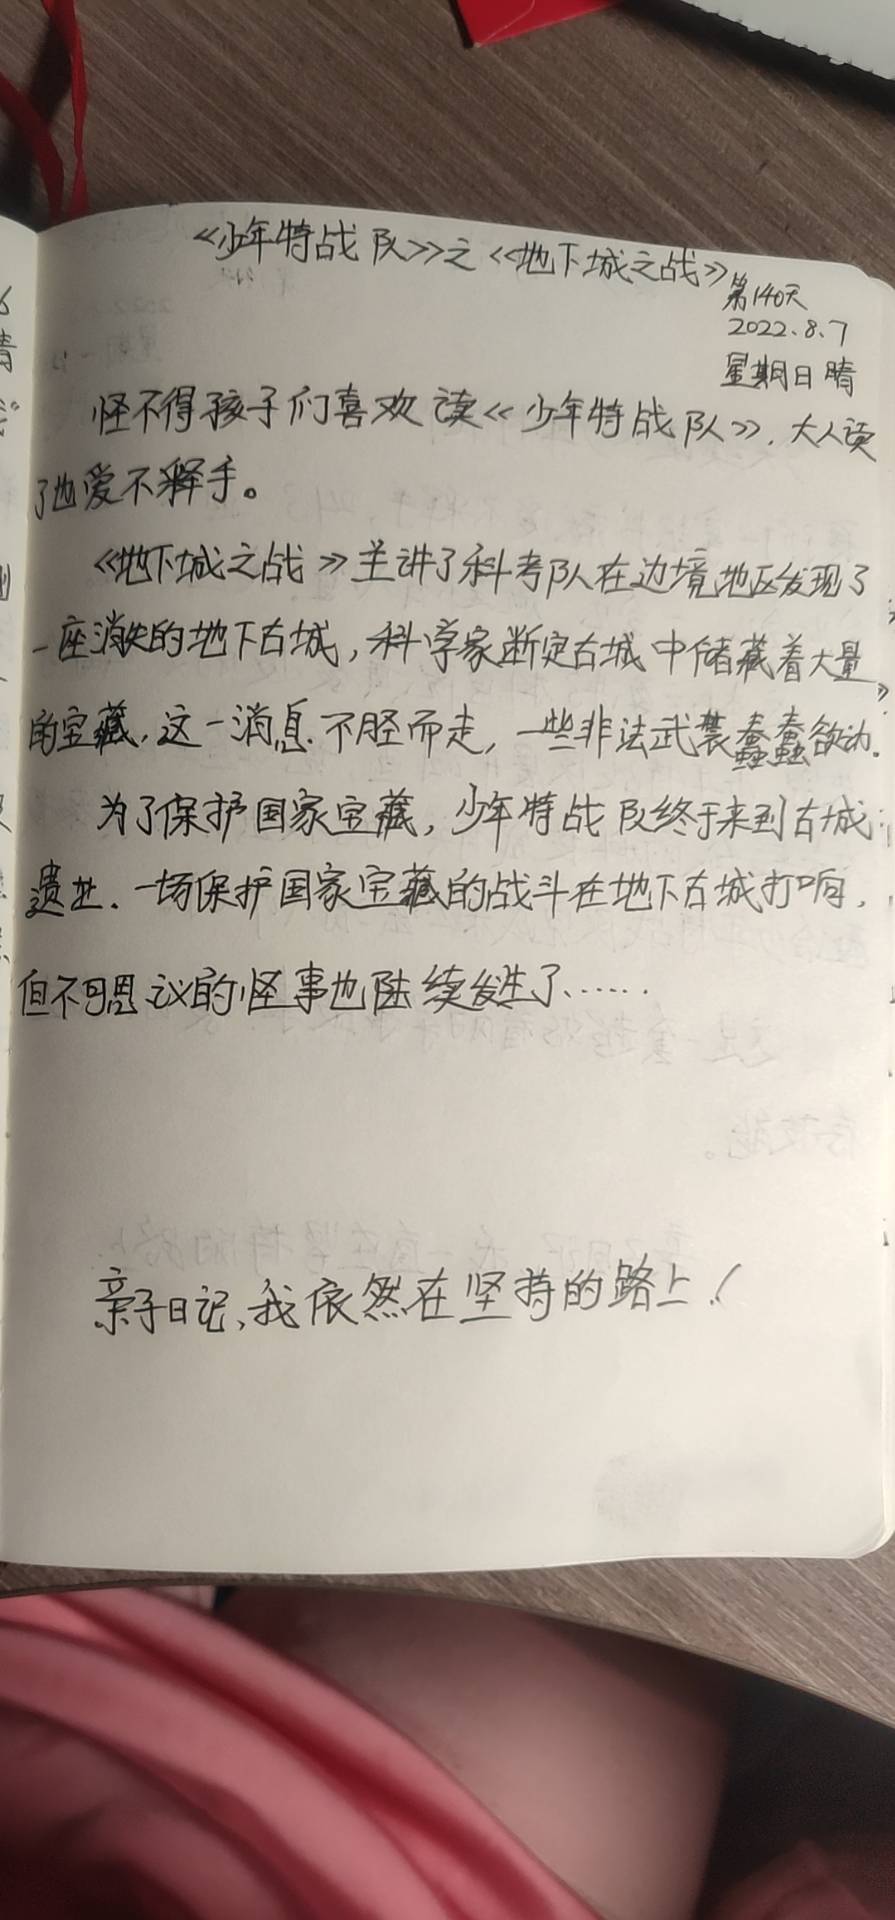 《少年特战队》之《地下城之战》
第140天
2022.8.7
星期日 晴
怪不得孩子们喜欢读《少年特战队》,大人读
了也爱不释手。
《地下城之战》主讲了科考队在边境地区发现了
一座消失的地下古城,科学家断定古城中储藏着大量
的宝藏,这一消息不胫而走,一些非法武装蠢蠢欲动.
为了保护国家宝藏,少年特战队终于来到古城
遗址.一场保护国家宝藏的战斗在地下古城打响,
但不可思议的怪事也陆续发生了......
亲子日记,我依然在坚持的路上!